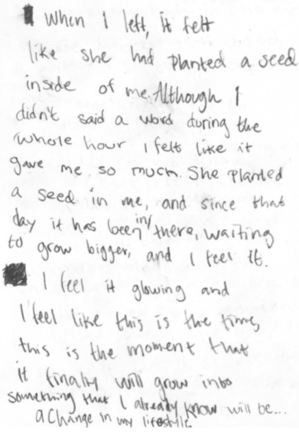 When I left, it felt
like she had planted a seed
inside of me. Although I
didn't said a word during the
whole hour I felt like it
gave me so much. She planted
a seed in me, and since that
day it has been in there, waiting
to grow bigger, and I feel it.
I feel it glowing and
I feel like this is the time,
this is the moment that
it finally will grow into
something that I already know will be...
a change in my lifestyle.